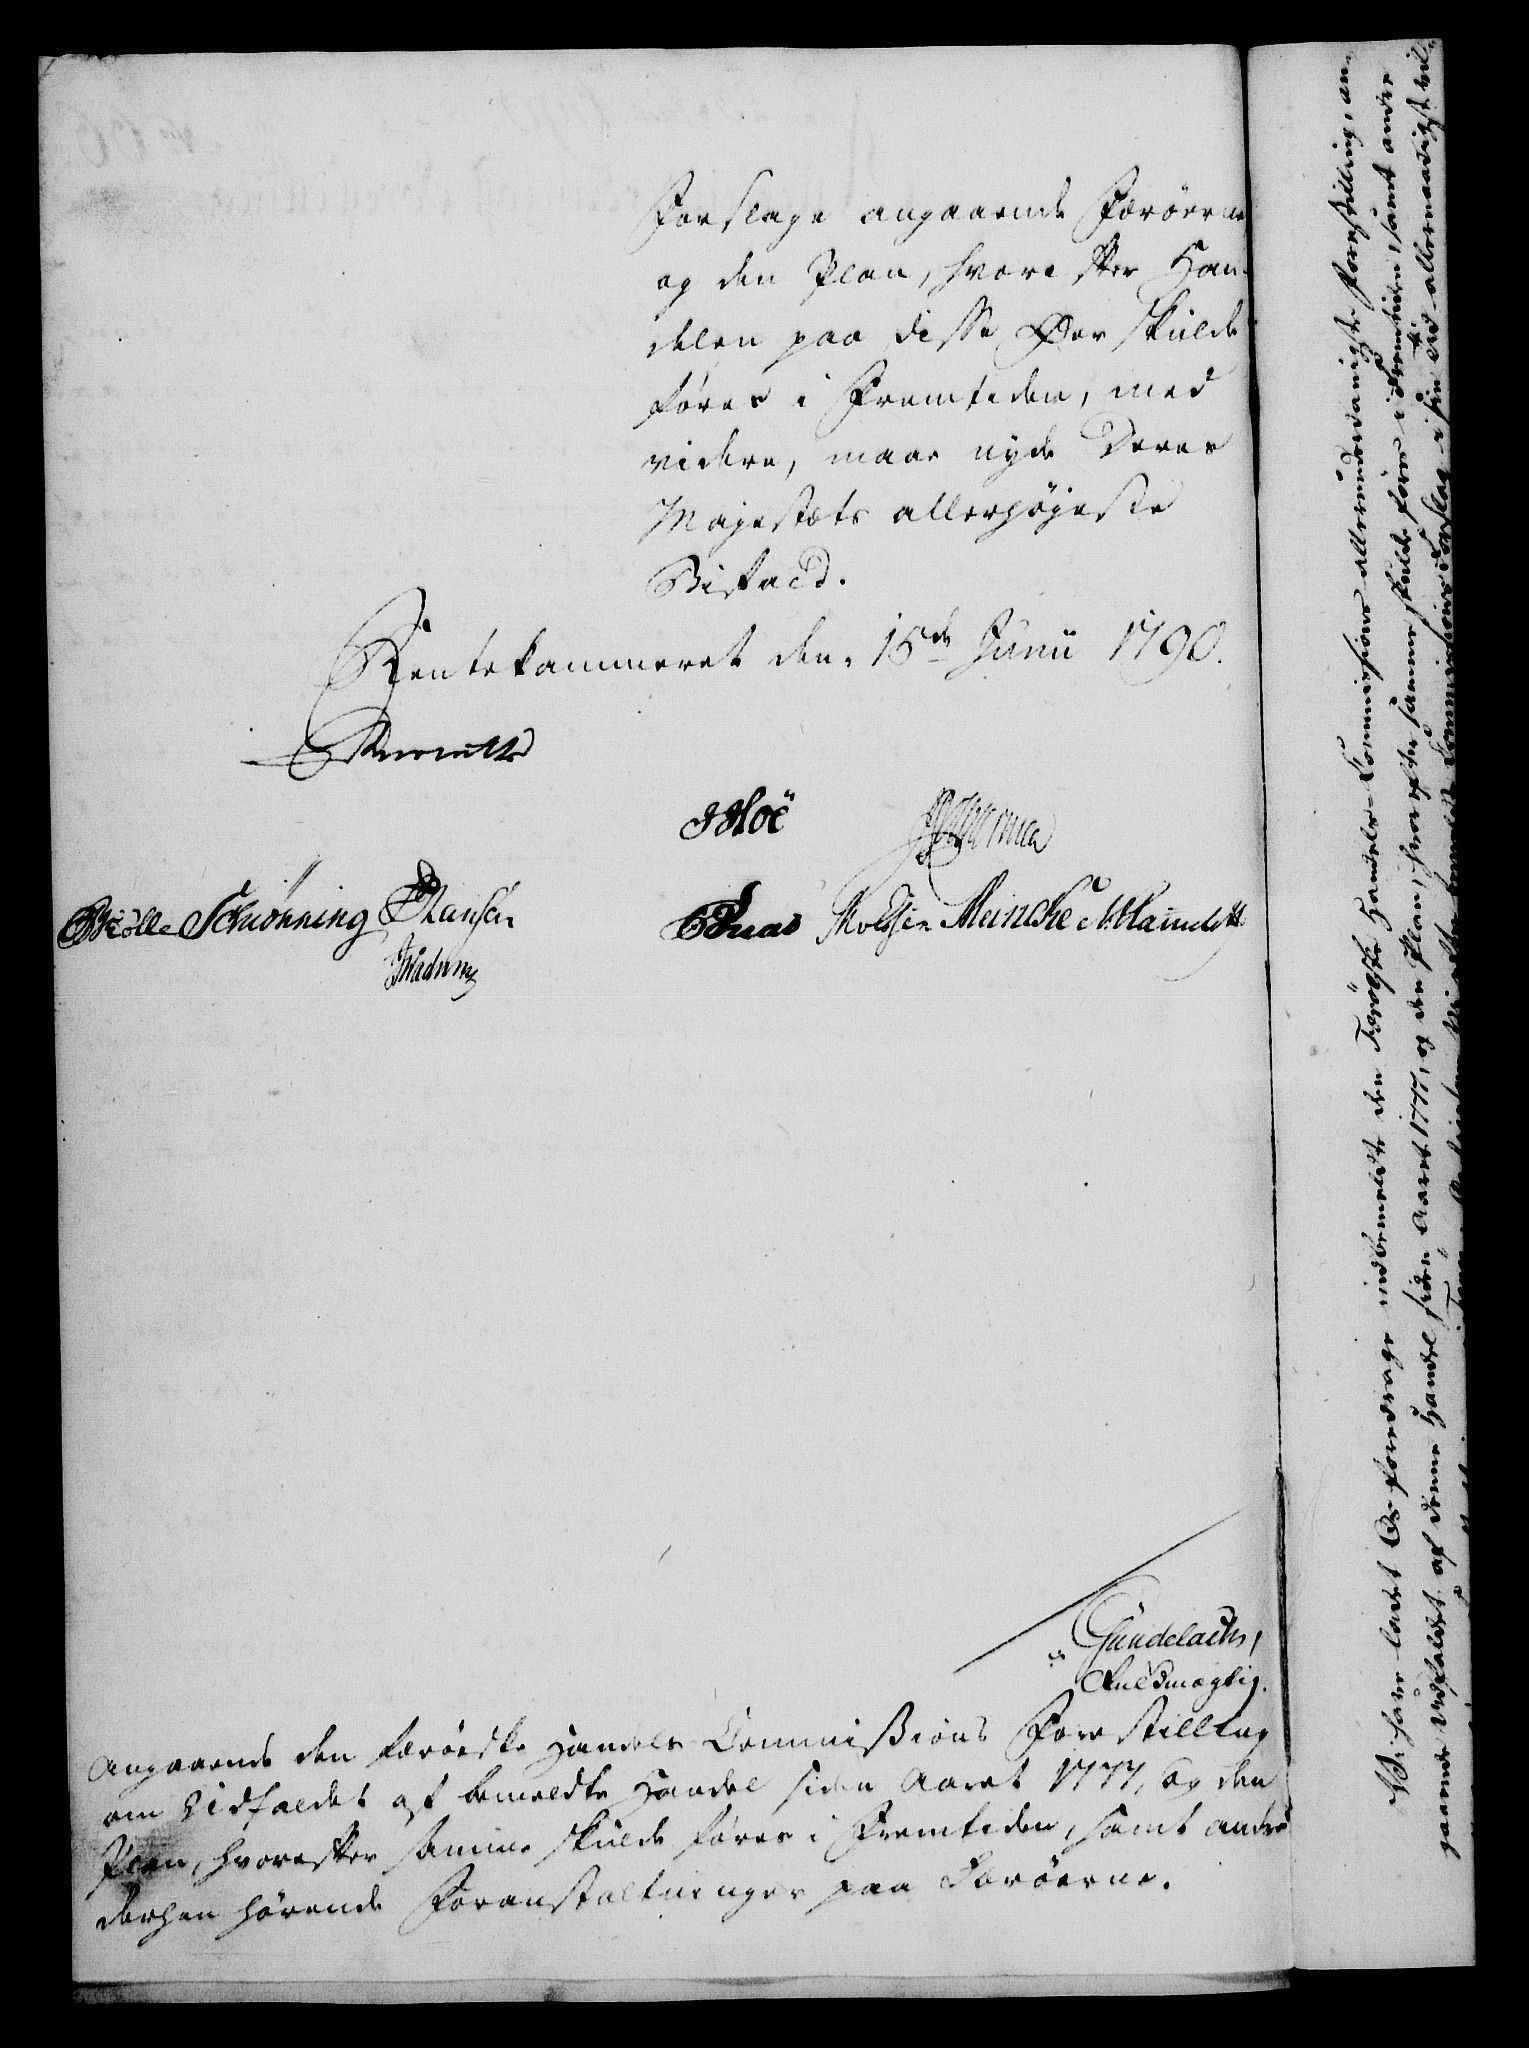 Forslage angaaende Færöerne
og den Plan, hvorefter Han-
delen paa disse Öer skulde
föres i Fremtiden, med
videre, maae nyde Deres
Majestæts allerhöjeste
Bifald.
Rentekammeret den 15de Junii 1790.
Reventlow
JHoë
Mölle Schiönning Hansen
Moldsen Meincke Hammeleff
Wadum
Gündelach,
Fuldmægtig.
Angaaende den færöeske Handels Commissions Forestilling
om Udfaldet af bemeldte Handel siden Aaret 1777, og den
Plan, hvorefter samme skulde föres i Fremtiden, samt andre
derhen hörende Foranstaltninger paa Færöerne.
Vi have ladet Os foredrage indbemeldte den Færöeske Handels-Commissions allerunderdanigste Forestilling, an-
gaaende Udfaldet af denne Handel siden Aaret 1777, og den Plan, hvorefter samme skulde föres i Fremtiden, samt andre